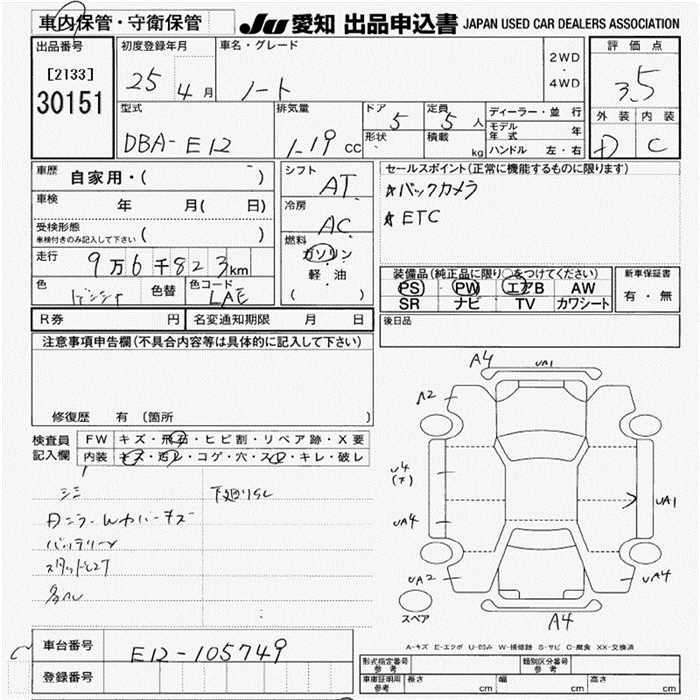 車内保管・守衛保管
JU 愛知 出品申込書 JAPAN USED CAR DEALERS ASSOCIATION
出品番号
[2133]
30151
初度登録年月
25 4 月
車名・グレード
ノート
2WD
・
4WD
評価点
3.5
外装 内装
D C
型式
DBA-E12
排気量
1.19 cc
ドア 5
定員 5 人
形状
積載 kg
ディーラー・並行
モデル年式 年
ハンドル 左・右
車歴 自家用・( )
車検 年 月( 日)
受検形態
車検付きのみ記入して下さい ( )
走行 9万6千823km
色
色替
色コード LAE
シフト AT
冷房 AC
燃料
ガソリン
軽・油
( )
セールスポイント(正常に機能するものに限ります)
☆バックカメラ
☆ETC
装備品(純正品に限り○をつけてください)
PS PW エアB AW
SR ナビ TV カワシート
新車保証書
有・無
R券 円 名変通知期限 月 日
後日品
注意事項申告欄(不具合内容等は具体的に記入して下さい)
修復歴 有(箇所 )
検査員
記入欄
FW キズ・飛石・ヒビ割・リペア跡・X要
内装 キズ・汚レ・コゲ・穴・スレ・キレ・破レ
シミ
下廻りSC
バッテリー
A4
UA1
A2
U4
(下)
UA4
UA2
UA1
UA4
スペア
A4
A-キズ E-エクボ U-凹み W-補修跡 S-サビ C-腐食 XX-交換済
車台番号 E12-105749
登録番号
形式指定番号
参考
類別区分番号
参考
車庫証明用
参考
長さ cm 幅 cm 高さ cm